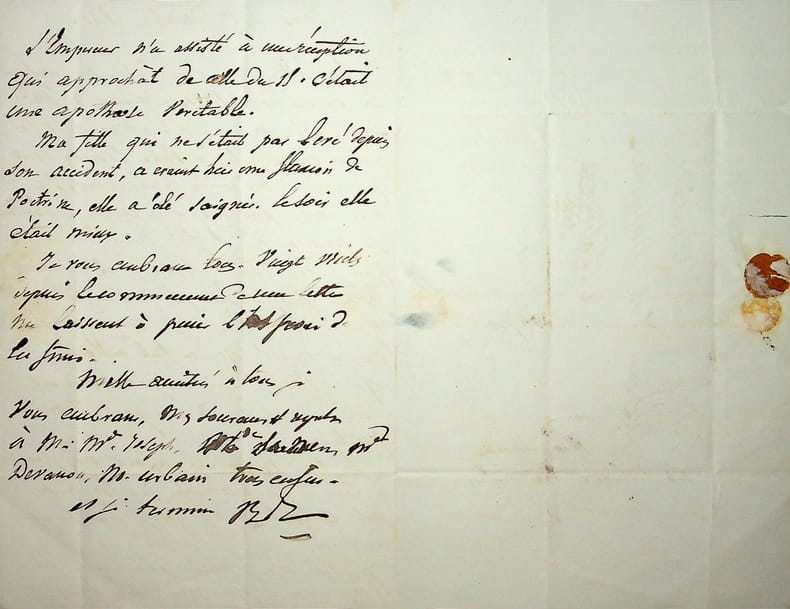 L'Empereur n'a assisté à une réception
qui approchât de celle du 15. C'était
une apothéose véritable.
Ma fille qui ne s'était pas levé depuis
son accident, a craint hier une fluxion de
Poitrine, elle a été soignée. le soir elle
était mieux.
Je vous embrasse tous. Vingt
depuis le commencement de ma lettre
me laissent à peine de
la finir.
Mille amitiés à tous je
Vous embrasse, Mes souvenirs et
à M. Mr. Joseph, Md
M. urbain tous enfin.
et je termine